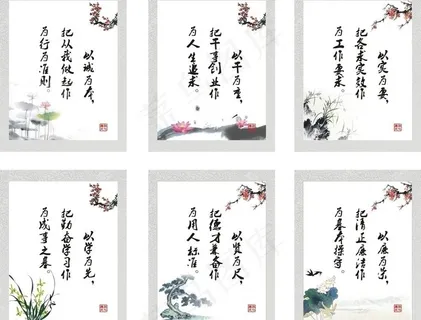 以诚为本，
把从我做起作
为行为准则。
以干为重，
把干事创业作
为人生追求。
以实为要，
把务求实效作
为工作要求。
以学为先，
把勤奋学习作
为成事之基。
以贤为尺，
把德才兼备作
为用人标准。
以廉为荣，
把清正廉洁作
为基本操守。